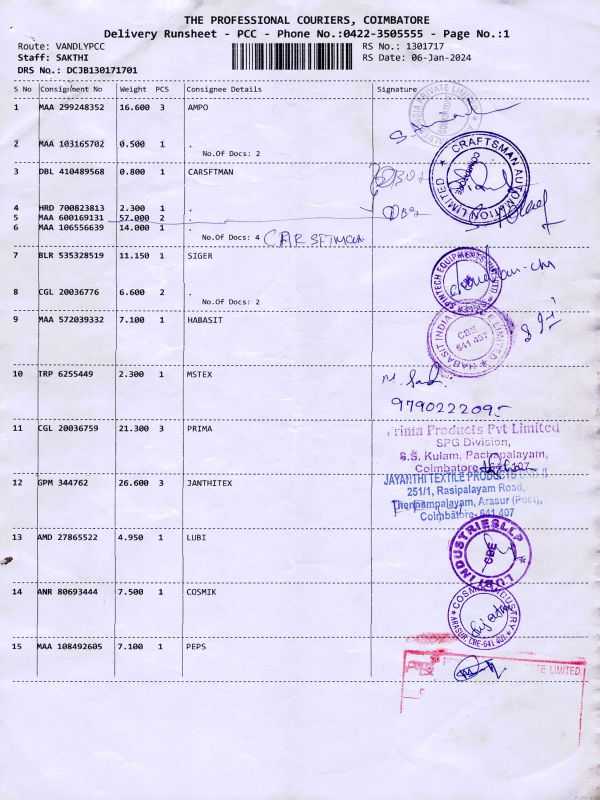 THE PROFESSIONAL COURIERS, COIMBATORE
Delivery Runsheet - PCC - Phone No.:0422-3505555 - Page No.:1
Route: VANDLYPCC RS No.: 1301717
Staff: SAKTHI RS Date: 06-Jan-2024
DRS No.: DCJB130171701
S No Consignment No Weight PCS Consignee Details Signature
1 MAA 299248352 16.600 3 AMPO
2 MAA 103165702 0.500 1 .
No.Of Docs: 2
3 DBL 410489568 0.800 1 CARSFTMAN
CRAFTSMAN AUTOMATION LIMITED
4 HRD 700823813 2.300 1 .
5 MAA 600169131 57.000 2 .
6 MAA 106556639 14.000 1 .
No.Of Docs: 4
7 BLR 535328519 11.150 1 SIGER
8 CGL 20036776 6.600 2 .
No.Of Docs: 2
9 MAA 572039332 7.100 1 HABASIT
HABASIT INDIA LIMITED
CBE
641 407
10 TRP 6255449 2.300 1 MSTEX
979022209-
11 CGL 20036759 3 21.300 PRIMA
Prima Products Pvt Limited
SPG Division,
S.S. Kulam, Pachapalayam,
Coimbatore 107
12 GPM 344762 26.600 3 JANTHITEX
JAYANTHI TEXTILE PRODUCTS
251/1, Rasipalayam Road,
Thennampalayam, Arasur (Post),
Coimbatore- 641 407
13 AMD 27865522 4.950 1 LUBI
LUBI INDUSTRIES LLP
CBE
14 ANR 80693444 7.500 1 COSMIK
COSMIK INDUSTRY
ARASUR, CBE-641 407
15 MAA 108492605 7.100 1 PEPS
PRIVATE LIMITED